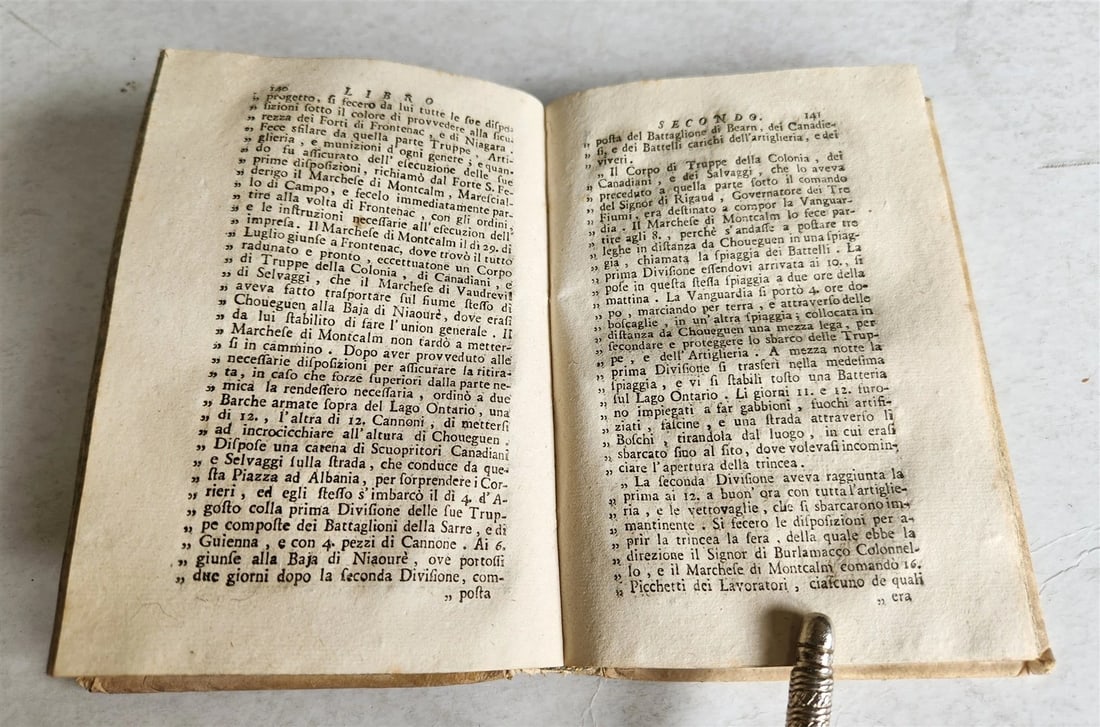 140 LIBRO
„ progetto, si fecero da lui tutte le sue dispo-
„ sizioni sotto il colore di provvedere alla sicu-
„ rezza dei Forti di Frontenac, e di Niagara.
„ Fece sfilare da quella parte Truppe, Arti-
„ glieria, e munizioni d'ogni genere; e quan-
„ do fu assicurato dell' esecuzione delle sue
„ prime disposizioni, richiamò dal Forte S. Fe-
„ derigo il Marchese di Montcalm, Marescial-
„ lo di Campo, e fecelo immediatamente par-
„ tire alla volta di Frontenac, con gli ordini,
„ e le instruzioni necessarie all' esecuzion dell'
„ impresa. Il Marchese di Montcalm il dì 29. di
„ Luglio giunse a Frontenac, dove trovò il tutto
„ radunato e pronto, eccettuatone un Corpo
„ di Truppe della Colonia, di Canadiani, e
„ di Selvaggi, che il Marchese di Vaudrevil
„ aveva fatto trasportare sul fiume stesso di
„ Choueguen alla Baja di Niaourè, dove erasi
„ da lui stabilito di fare l'union generale. Il
„ Marchese di Montcalm non tardò a metter-
„ si in cammino. Dopo aver provveduto alle
„ necessarie disposizioni per assicurare la ritira-
„ ta, in caso che forze superiori dalla parte ne-
„ mica la rendessero necessaria, ordinò a due
„ Barche armate sopra del Lago Ontario, una
„ di 12., l'altra di 12. Cannoni, di mettersi
„ ad incrocicchiare all'altura di Choueguen.
„ Dispose una catena di Scuopritori Canadiani
„ e Selvaggi sulla strada, che conduce da que-
„ sta Piazza ad Albania, per sorprendere i Cor-
„ rieri, ed egli stesso s'imbarcò il dì 4. d'A-
„ gosto colla prima Divisione delle sue Trup-
„ pe composte dei Battaglioni della Sarre, e di
„ Guienna, e con 4. pezzi di Cannone. Ai 6.
„ giunse alla Baja di Niaourè, ove portossi
„ due giorni dopo la seconda Divisione, com-
„ posta
SECONDO. 141
„ posta del Battaglione di Bearn, dei Canadie-
„ si, e dei Battelli carichi dell'artiglieria, e dei
„ viveri.
„ Il Corpo di Truppe della Colonia, dei
„ Canadiani, e dei Salvaggi, che lo aveva
„ preceduto a quella parte sotto il comando
„ del Signor di Rigaud, Governatore dei Tre
„ Fiumi, era destinato a compor la Vanguar-
„ dia. Il Marchese di Montcalm lo fece par-
„ tire agli 8., perchè s'andasse a postare tre
„ leghe in distanza da Choueguen in una spiag-
„ gia, chiamata la spiaggia dei Battelli. La
„ prima Divisione essendovi arrivata ai 10., si
„ pose in questa stessa spiaggia a due ore della
„ mattina. La Vanguardia si portò 4. ore do-
„ po, marciando per terra, e attraverso delle
„ boscaglie, in un'altra spiaggia; collocata in
„ distanza da Choueguen una mezza lega, per
„ secondare e proteggere lo sbarco delle Trup-
„ pe, e dell'Artiglieria. A mezza notte la
„ prima Divisione si trasferì nella medesima
„ spiaggia, e vi si stabilì tosto una Batteria
„ sul Lago Ontario. Li giorni 11. e 12. furo-
„ no impiegati a far gabbioni, fuochi artifi-
„ ziati, fascine, e una strada attraverso li
„ Boschi, tirandola dal luogo, in cui erasi
„ sbarcato sino al sito, dove volevasi incomin-
„ ciare l'apertura della trincea.
„ La seconda Divisione aveva raggiunta la
„ prima ai 12. a buon' ora con tutta l'artiglie-
„ ria, e le vettovaglie, che si sbarcarono im-
„ mantinente. Si fecero le disposizioni per a-
„ prir la trincea la sera, della quale ebbe la
„ direzione il Signor di Burlamacco Colonnel-
„ lo, e il Marchese di Montcalm comandò 16.
„ Picchetti dei Lavoratori, ciascuno de quali
„ era